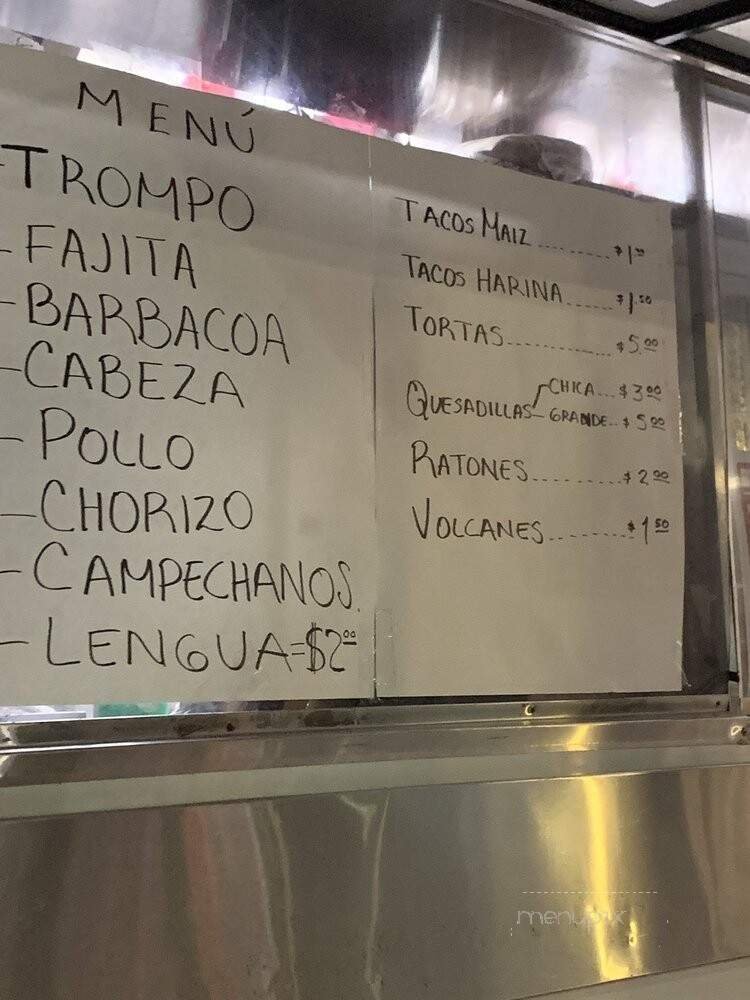 MENÚ
-TROMPO
-FAJITA
-BARBACOA
-CABEZA
-POLLO
-CHORIZO
-CAMPECHANOS.
-LENGUA=$2.00
TACOS MAIZ.........$1.00
TACOS HARINA......$1.50
TORTAS..............$5.00
QUESADILLAS CHICA...$3.00
GRANDE..$5.00
RATONES...........$2.00
VOLCANES.........$1.50
menupix